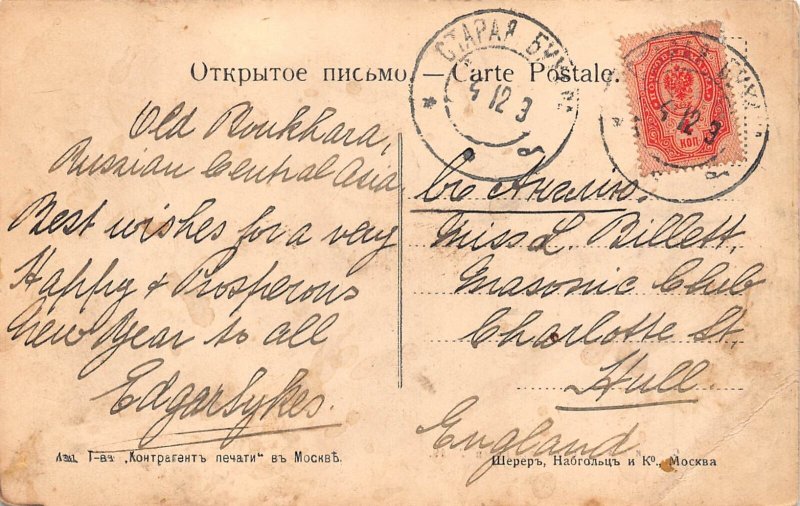 Открытое письмо. — Carte Postale.
СТАРАЯ БУХАРА
4 12 9
4 12 9
КОП
Old Boukhara,
Russian Central Asia
Best wishes for a very
Happy & Prosperous
New Year to all
Edgar Sykes.
въ Англію.
Miss L. Billett,
Masonic Club
Charlotte St.
Hull.
England
Т-ва „Контрагентъ печати“ въ Москвѣ.
Шереръ, Набгольцъ и Ко., Москва